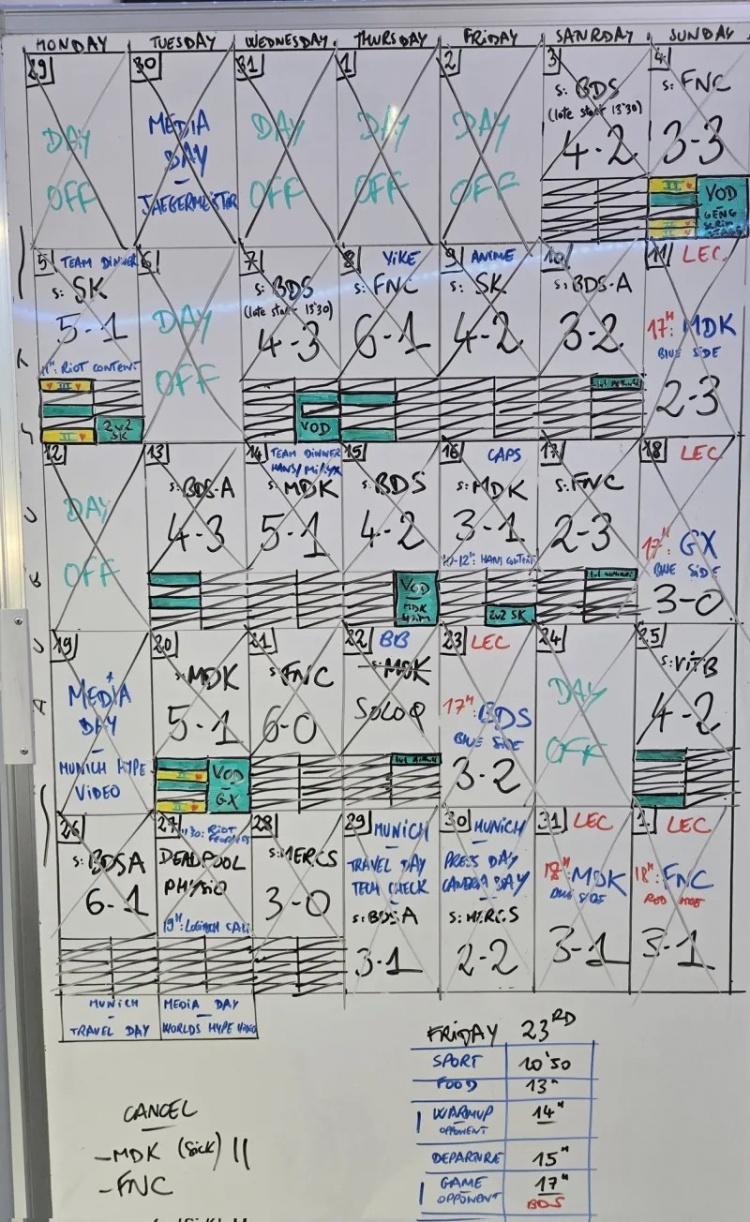 MONDAY TUESDAY WEDNESDAY THURSDAY FRIDAY SATURDAY SUNDAY
29
DAY
OFF
30
MEDIA
DAY
-
JAEGERMEISTER
31
DAY
OFF
1
DAY
OFF
2
DAY
OFF
3
S: BDS
(late start 13'30)
4-2
4
S: FNC
3-3
VOD
GENG
5
TEAM DINNER
S: SK
5-1
RIOT CONTENT
2v2
SK
6
DAY
OFF
7
S: BDS
(late start 13'30)
4-3
VOD
8
YIKE
S: FNC
6-1
9
ANIME
S: SK
4-2
10
S: BDS-A
3-2
11
LEC
17H: MDK
BLUE SIDE
2-3
12
DAY
OFF
13
S: BDS-A
4-3
14
TEAM DINNER
S: MDK
5-1
15
S: BDS
4-2
VOD
-
MDK
16
CAPS
S: MDK
3-1
2v2 SK
17
S: FNC
2-3
18
LEC
17H: GX
BLUE SIDE
3-0
19
MEDIA
DAY
-
MUNICH HYPE
VIDEO
20
S: MDK
5-1
VOD
-
GX
21
S: FNC
6-0
22
BB
S: MDK
SOLOQ
23
LEC
17H: BDS
BLUE SIDE
3-2
24
DAY
OFF
25
S: VITB
4-2
26
S: BDSA
6-1
27
DEADPOOL
PHYSIO
28
S: MERCS
3-0
29
MUNICH
TRAVEL DAY
TECH CHECK
S: BDSA
3-1
30
MUNICH
PRESS DAY
S: MERCS
2-2
31
LEC
18H: MDK
BLUE SIDE
3-1
1
LEC
18H: FNC
RED SIDE
3-1
MUNICH
-
TRAVEL DAY
MEDIA DAY
-
WORLDS HYPE VIDEO
FRIDAY 23RD
SPORT 10'50
FOOD 13H
WARMUP 14H
OPPONENT
DEPARTURE 15H
GAME 17H
OPPONENT BDS
CANCEL
- MDK (sick) ||
- FNC